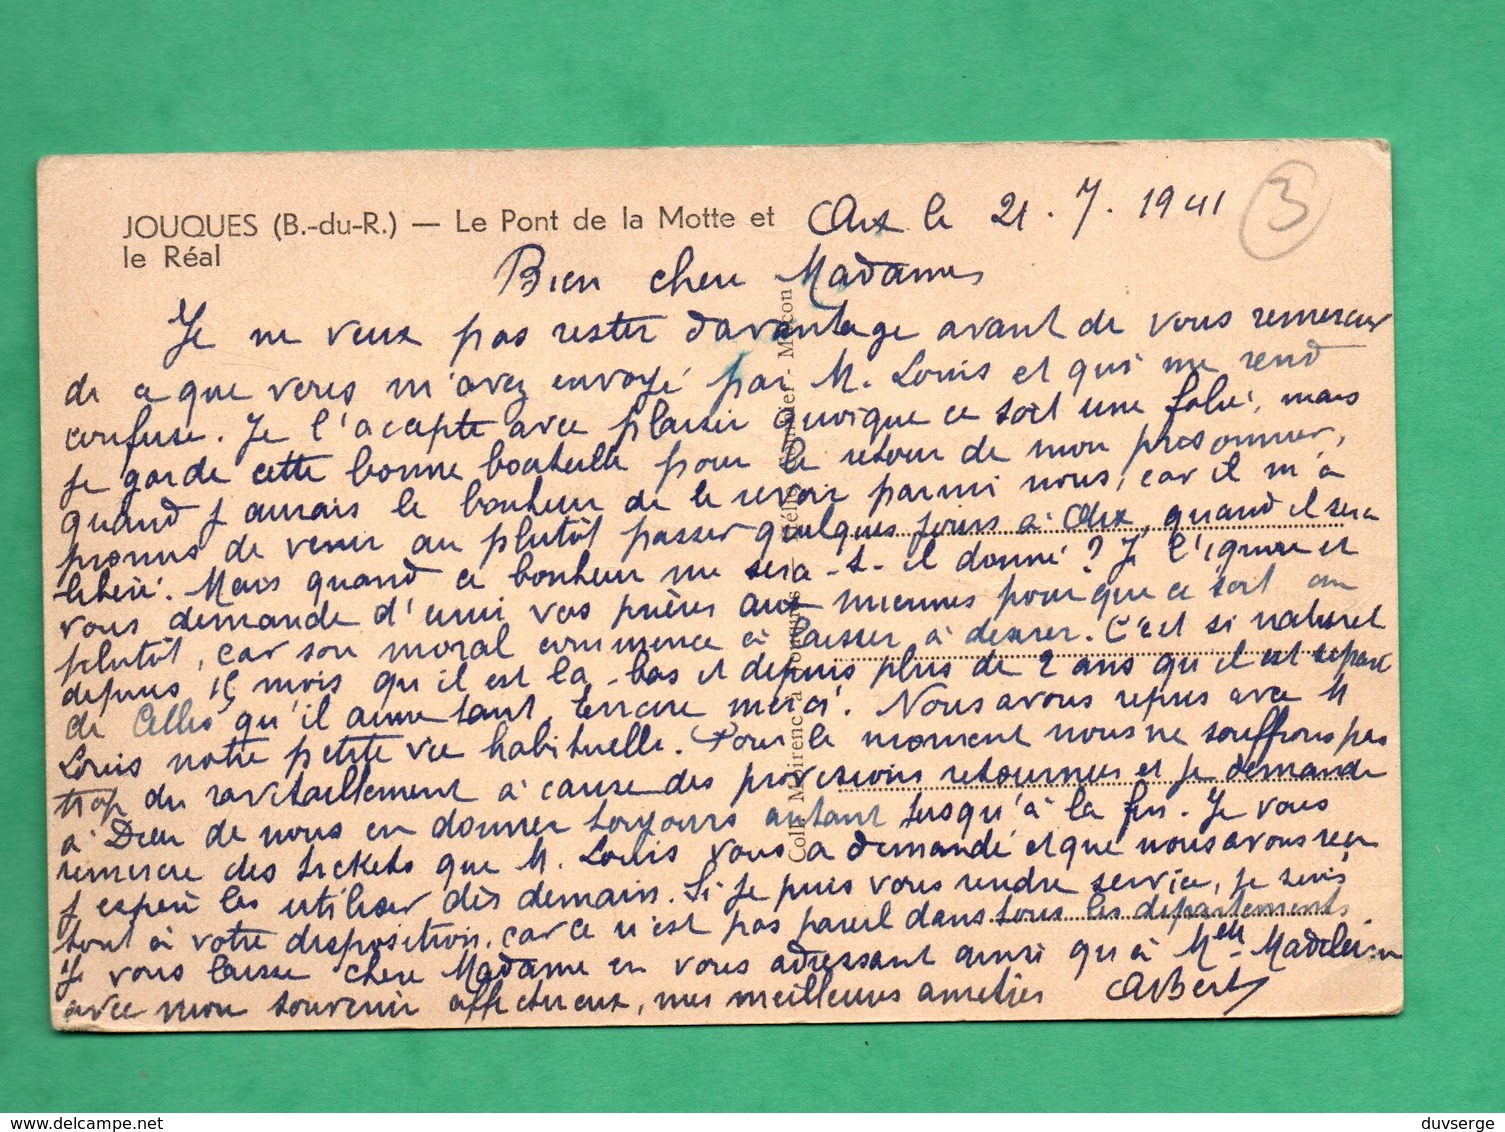 JOUQUES (B.-du-R.) — Le Pont de la Motte et
le Réal
Aix le 21.7.1941
3
Bien chere Madame
Je ne veux pas rester davantage avant de vous remercier
de ce que venez m'avez envoyé par M. Louis et qui me rend
confuse. Je l'accepte avec plaisir quoique ce soit une folie, mais
je garde cette bonne bouteille pour le retour de mon prisonnier,
quand j aurais le bonheur de le revoir parmi nous, car il m'a
promis de venir au plutôt passer quelques jours à Aix, quand il sera
libéré. Mais quand ce bonheur me sera-t-il donné? Je l'ignore et
vous demande d'unir vos prières aux miennes pour que ce soit au
plutôt, car son moral commence à laisser à desirer. C'est si naturel
depuis 14 mois qu'il est la-bas et depuis plus de 2 ans qu'il est séparé
de Celles qu'il aime tant. Encore merci. Nous avons repris avec M
Louis notre petite vie habituelle. Pour le moment nous ne souffrons pas
trop du ravitaillement à cause des provisions retournees et je demande
à Dieu de nous en donner toujours autant jusqu'à la fin. Je vous
remercie des tickets que M. Louis vous a demandé et que nous avons reçu
j espère les utiliser dès demain. Si je puis vous rendre service, je suis
tout à votre disposition, car ce n'est pas pareil dans tous les départements.
Je vous laisse chere Madame en vous adressant ainsi qu'à Melle Madeleine
avec mon souvenir affectueux, mes meilleures amitiés Albert
Mâcon
duvserge
www.delcampe.net